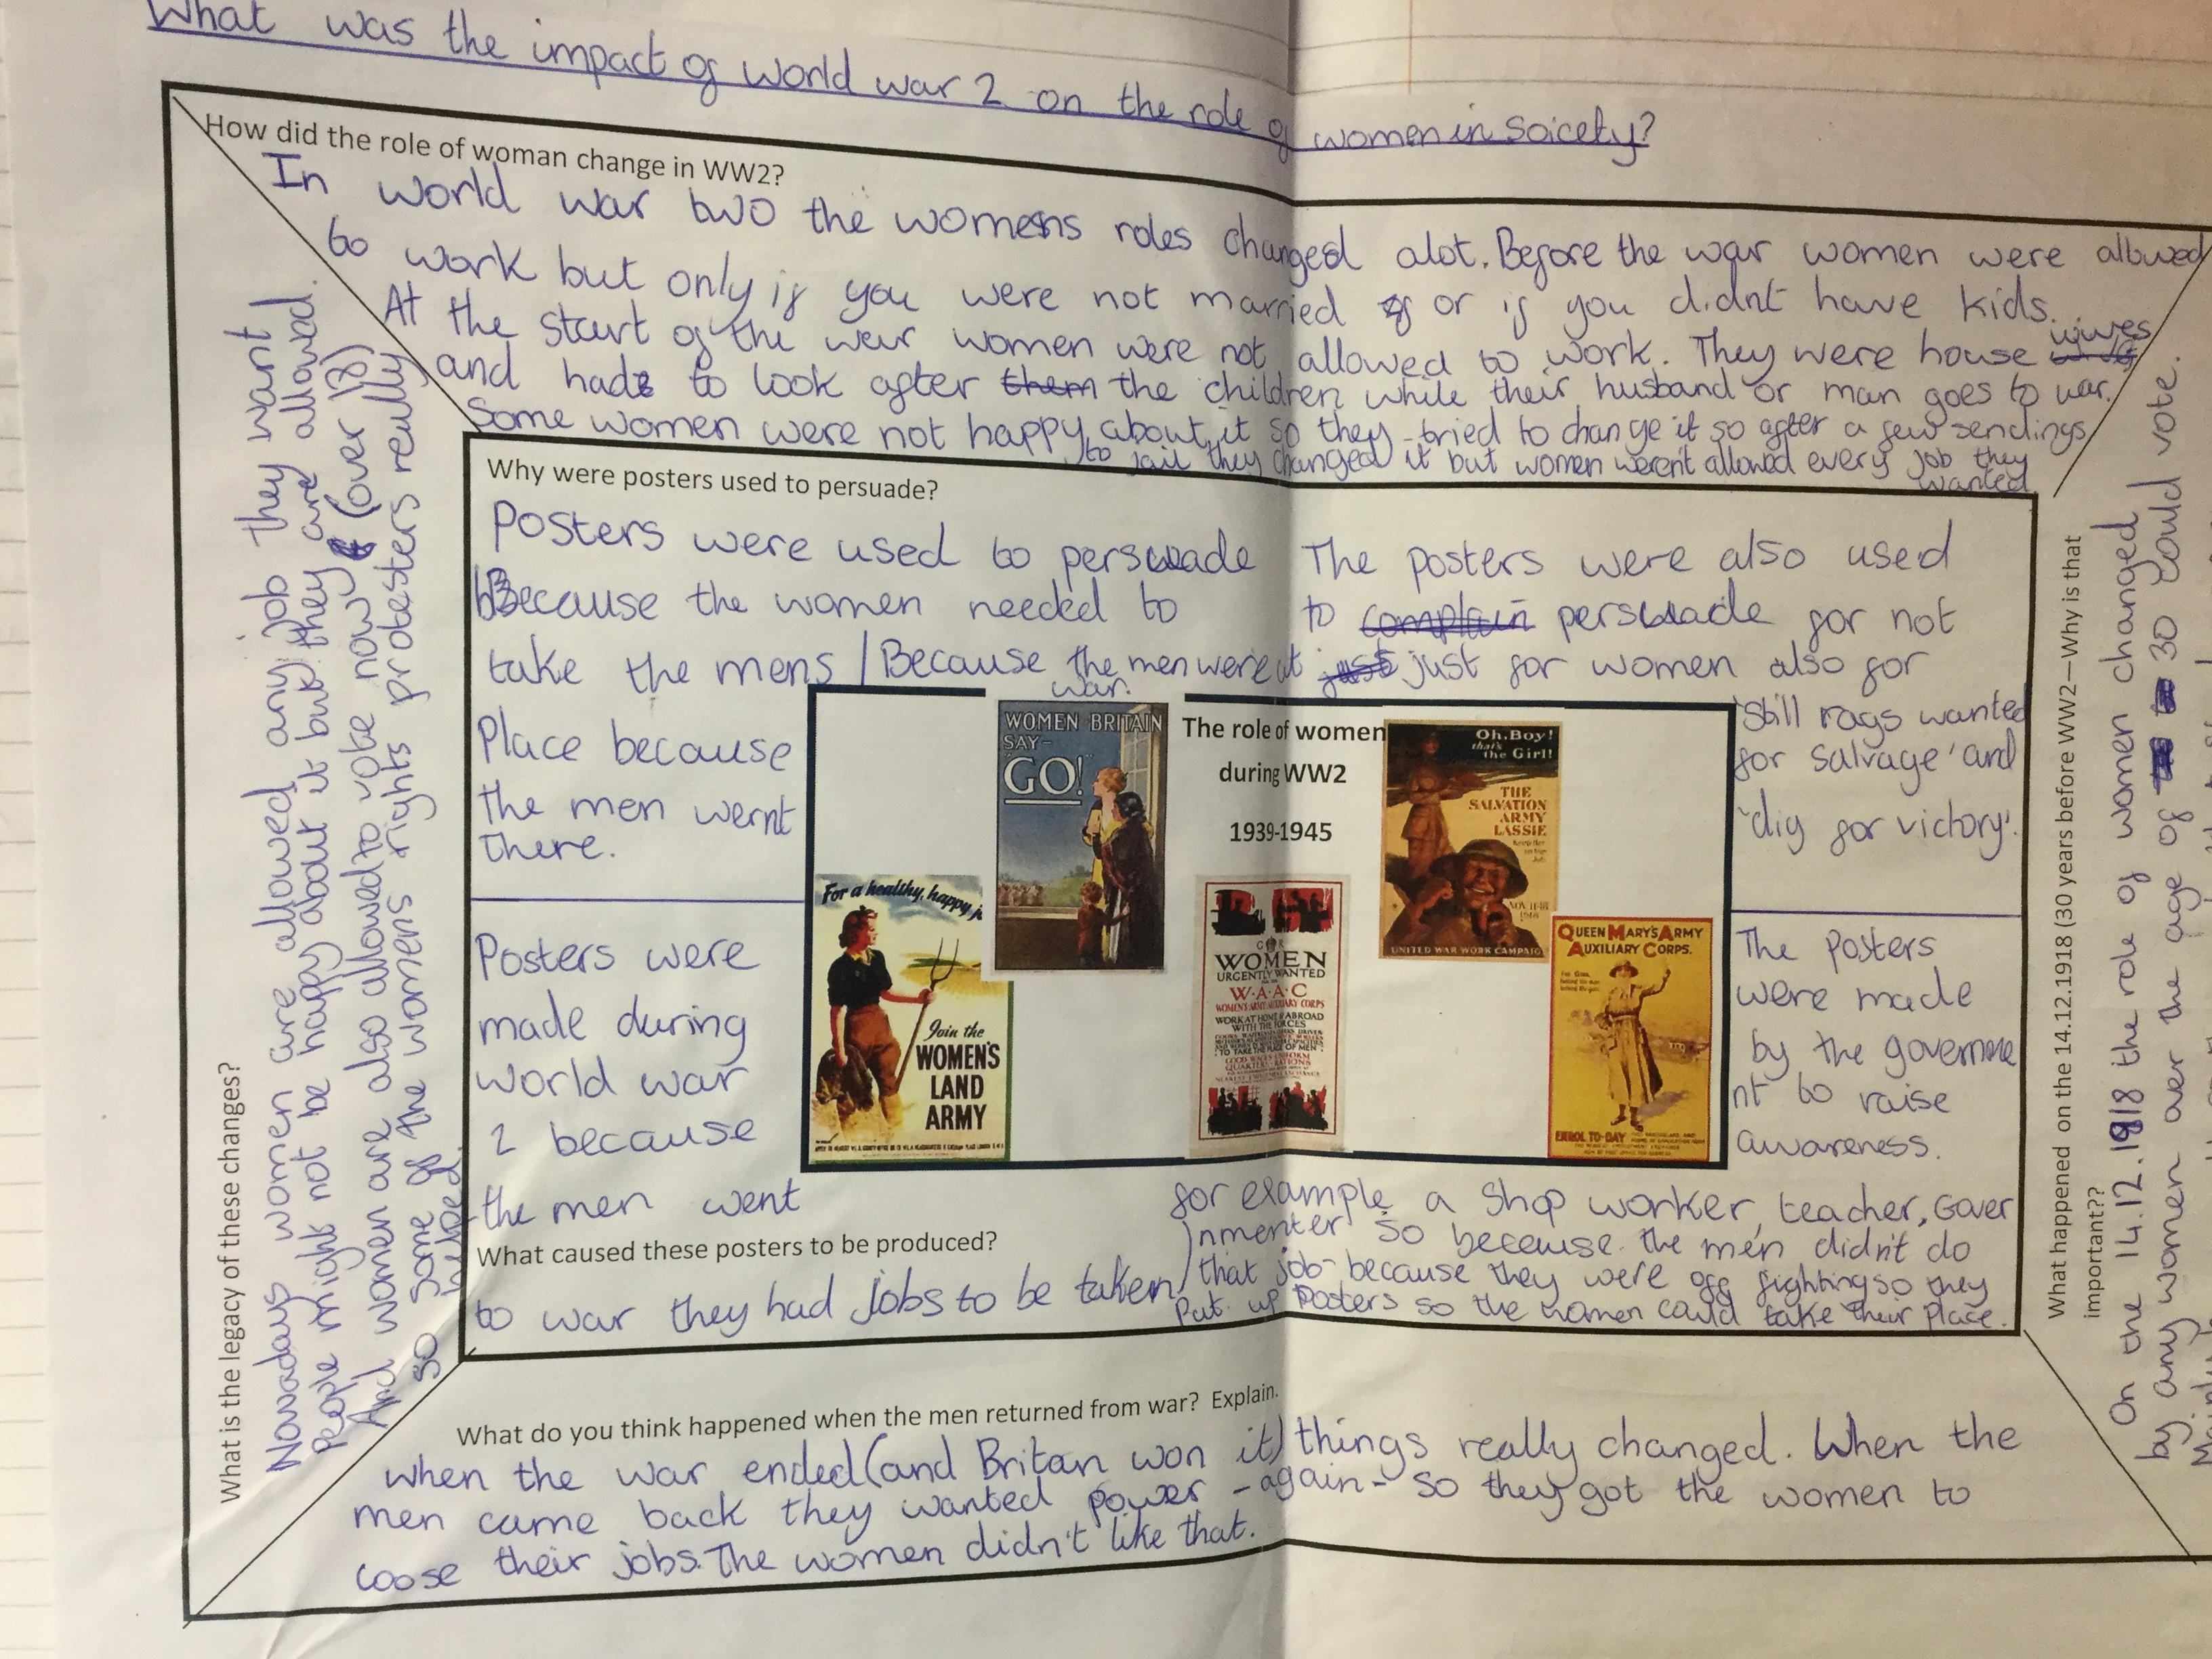 What was the impact of World War 2 on the role of women in soicety?
How did the role of woman change in WW2?
In world war two the womens roles changed alot. Before the war women were allowed
to work but only if you were not married or if you didnt have kids.
At the start of the war women were not allowed to work. They were house wives
and had to look after them the children while their husband or man goes to war.
Some women were not happy about it so they tried to change it so after a few sendings
to jail they changed it but women weren't allowed every job they
wanted
Why were posters used to persuade?
Posters were used to persuade
Because the women needed to
take the mens / Because the men were at
war.
Place because
the men wernt
there.
The posters were also used
to complain persuade for not
just just for women also for
'Still rags wanted
for salvage' and
'dig for victory'.
Posters were
made during
world war
2 because
the men went
What caused these posters to be produced?
to war they had jobs to be taken
for example a shop worker, teacher, Gover
nmenter so because the men didn't do
that job because they were off fighting so they
Put up Posters so the women could take their place.
The posters
were made
by the governme
nt to raise
awareness.
WOMEN BRITAIN
SAY-
"GO!"
The role of women
during WW2
1939-1945
Oh, Boy!
that's
the Girl!
THE
SALVATION
ARMY
LASSIE
Keep Her
on the
Job
NOV 11-18
1918
UNITED WAR WORK CAMPAIGN
For a healthy, happy j
Join the
WOMEN'S
LAND
ARMY
G R
WOMEN
URGENTLY WANTED
W·A·A·C
WOMEN'S ARMY AUXILIARY CORPS
WORK AT HOME & ABROAD
WITH THE FORCES
TO TAKE THE PLACE OF MEN
QUEEN MARY'S ARMY
AUXILIARY CORPS.
ENROL TO-DAY
What do you think happened when the men returned from war? Explain.
When the war ended (and Britan won it) things really changed. When the
men came back they wanted power - again - so they got the women to
loose their jobs. The women didn't like that.
What is the legacy of these changes?
Nowadays women are allowed any job they want
People might not be happy about it but they are allowed.
And women are also allowed to vote now (over 18)
so some of the womens rights protesters really
helped.
What happened on the 14.12.1918 (30 years before WW2—Why is that
important??
On the 14.12.1918 the role of women changed
by any women over the age of 30 could vote.